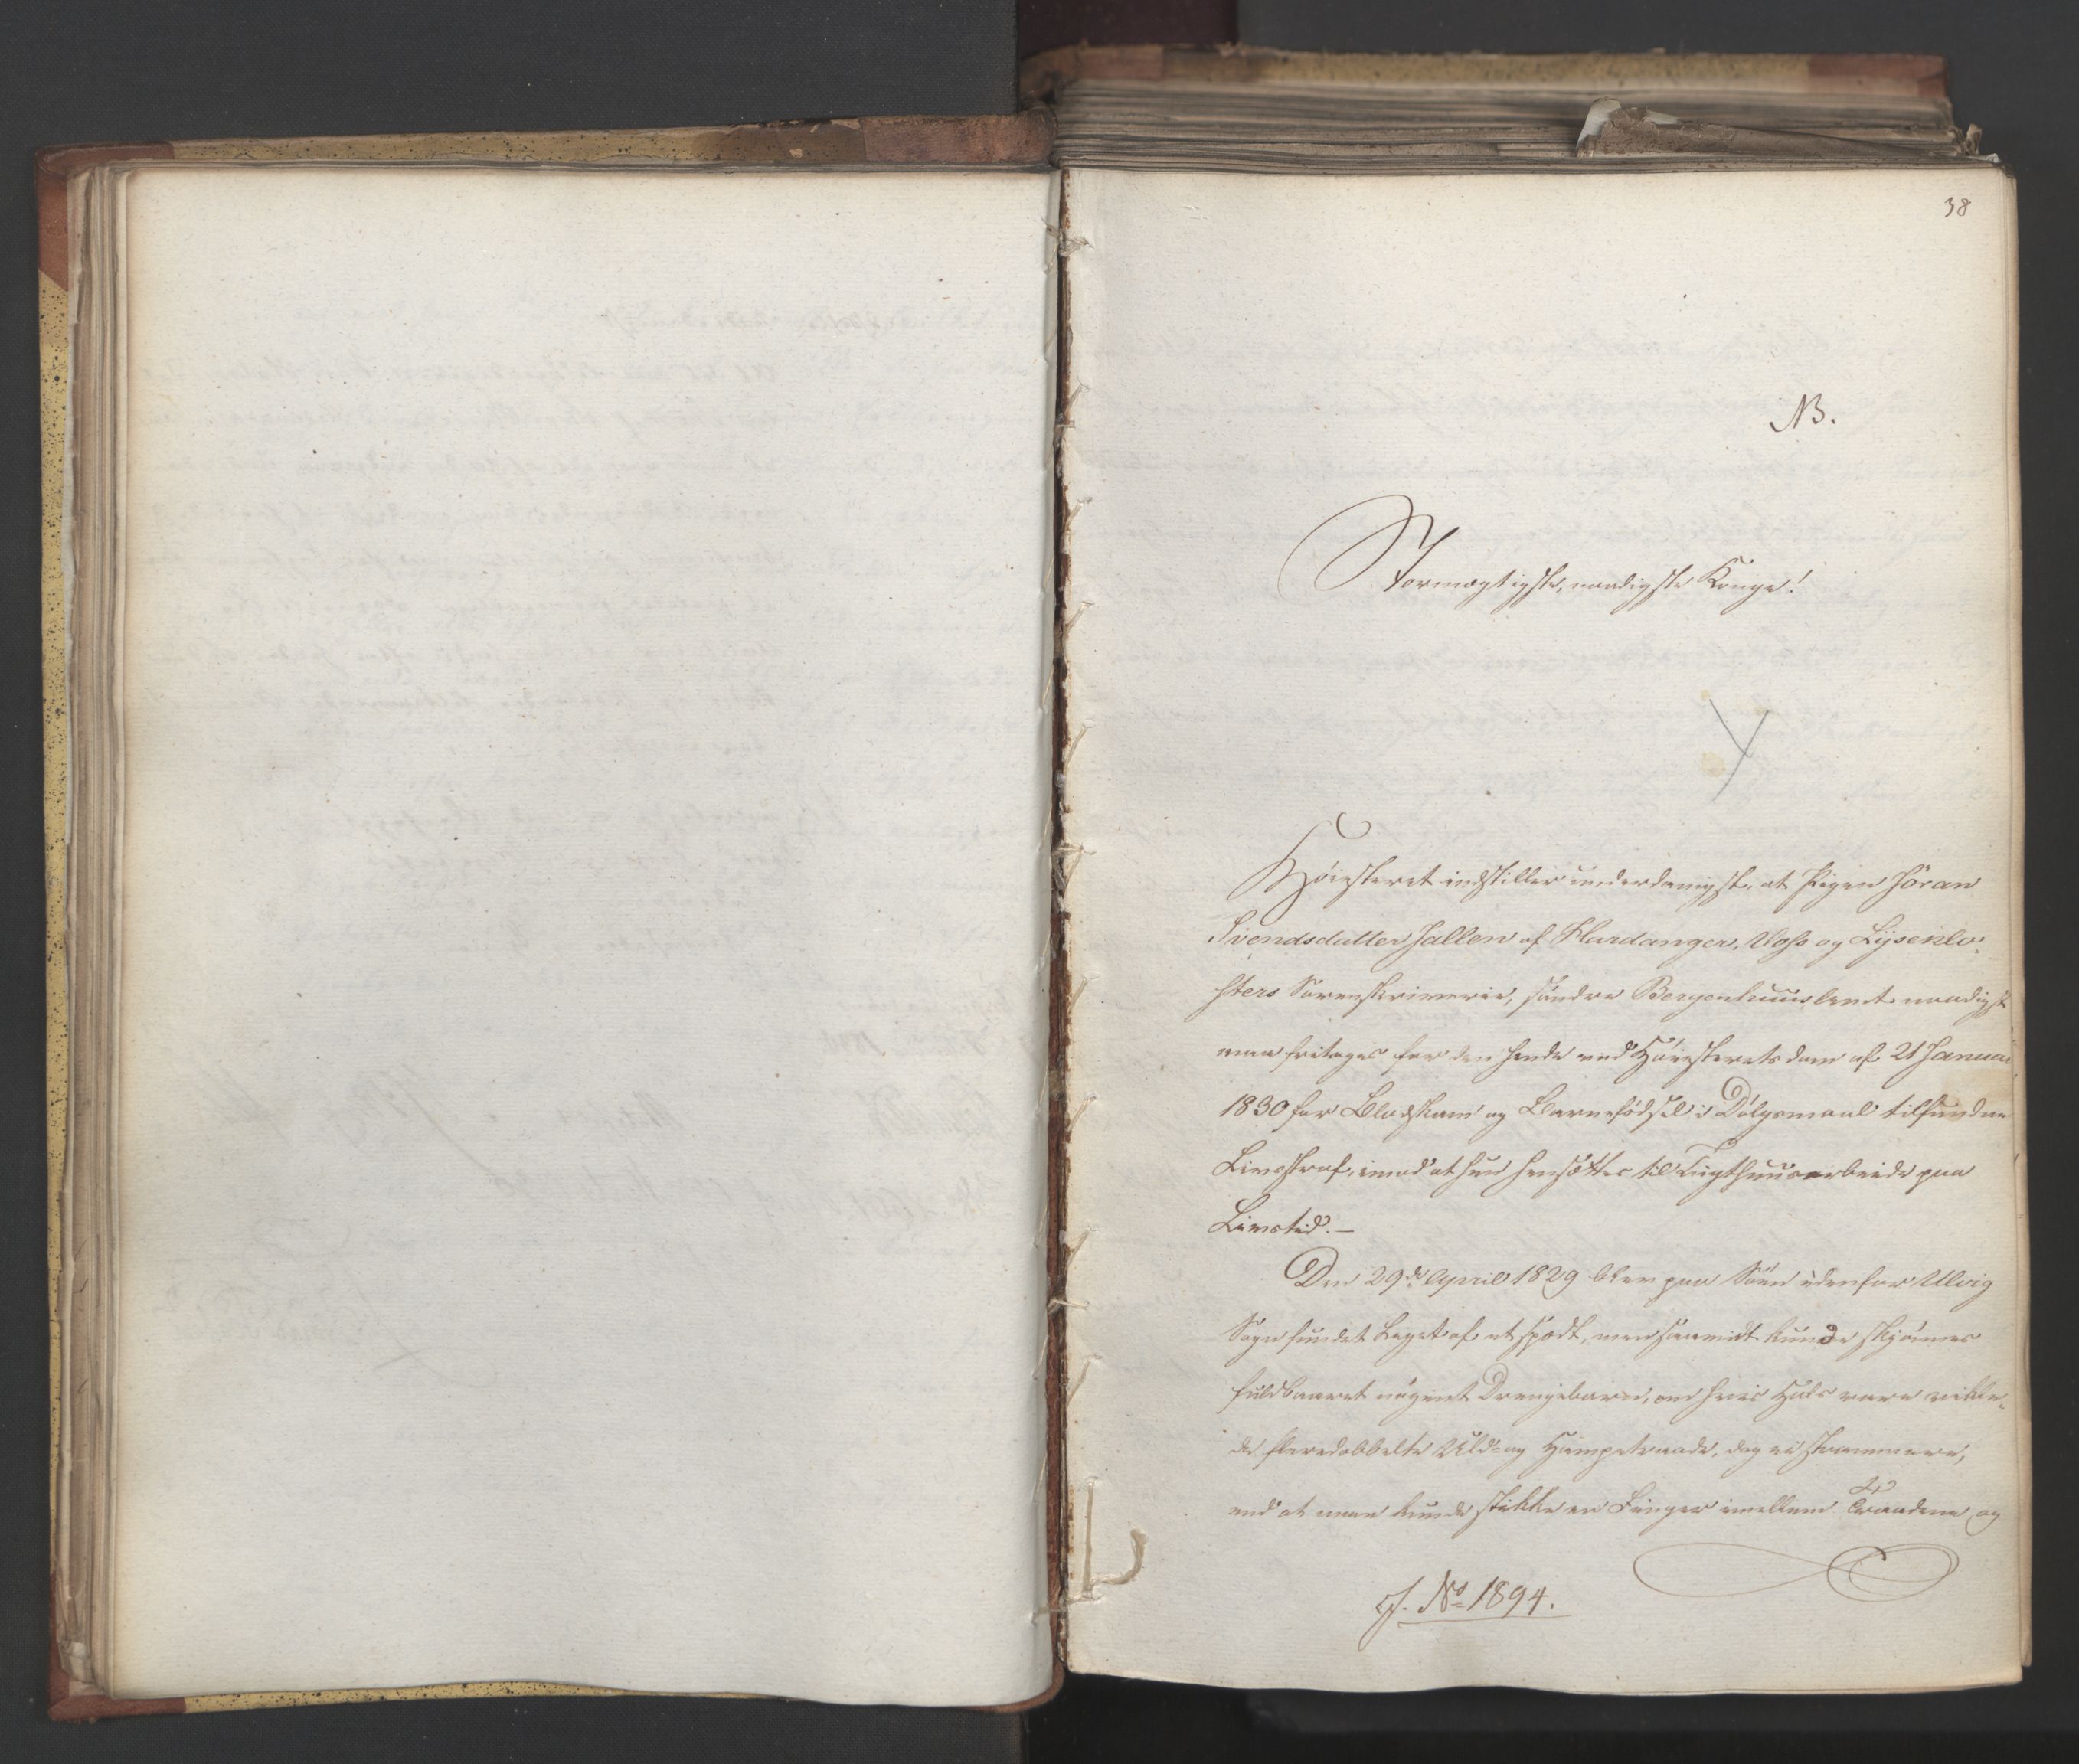 38
NB.
Stormægtigste, naadigste Konge!
Höiesteret indstiller underdanigst, at Pigen Jöran
Svendsdatter Jallen af Hardanger, Voss og Lyseklo-
sters Sorenskriverie, söndre Bergenhuus Amt naadigst
maa fritages for den hende ved Höiesterets dom af 21 Januar
1830 for Blodskam og Barnefödsel i Dölgsmaal tilfundne
Livsstraf, imod at hun hensættes til Tugthuusarbeide paa
Livstid.—
Den 29de April 1829 blev paa Söen udenfor Ulvig
Sogn fundet Liget af et spædt, men saavidt kunde skjönnes
fuldbaaret nögent Drengebarn, om hvis Hals vare vikle-
de fleredobbelte Uld- og Hampetraade, dog ei strammere,
end at man kunde stikke en Finger imellem Traadene og
J. No 1894.